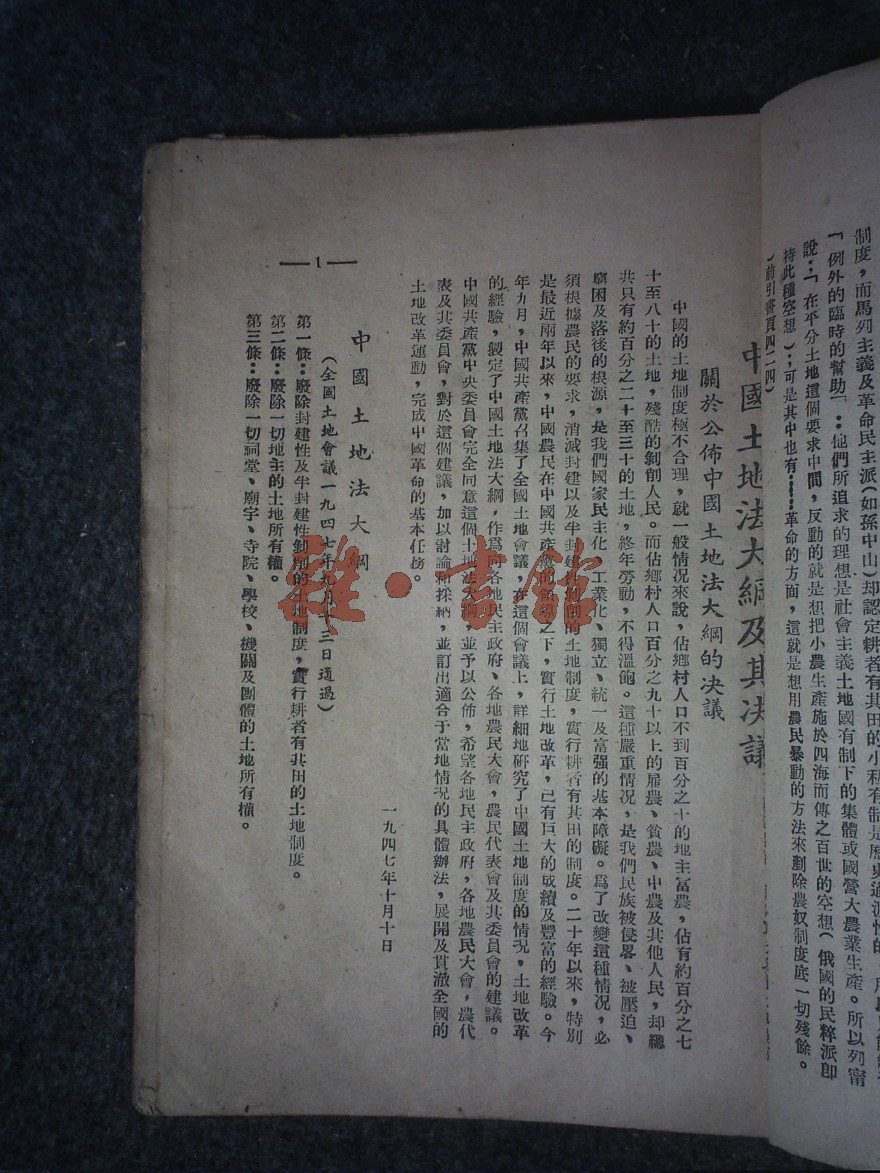 制度,而馬列主義及革命民主派(如孫中山)却認定耕者有其田的小私有制是歷史過渡性的
「例外的臨時的幫助」:他們所追求的理想是社會主義土地國有制下的集體或國營大農業生產。所以列甯
說:「在平分土地這個要求中間,反動的就是想把小農生產施於四海而傳之百世的空想(俄國的民粹派卽
持此種空想);可是其中也有……革命的方面,這就是想用農民暴動的方法來剷除農奴制度底一切殘餘。
(前引書頁四二四)
中國土地法大綱及其决議
關於公佈中國土地法大綱的决議
中國的土地制度極不合理,就一般情况來說,佔鄉村人口不到百分之十的地主富農,佔有約百分之七
十至八十的土地,殘酷的剝削人民。而佔鄉村人口百分之九十以上的雇農、貧農、中農及其他人民,却總
共只有約百分之二十至三十的土地,終年勞動,不得溫飽。這種嚴重情况,是我們民族被侵畧、被壓迫、
窮困及落後的根源,是我們國家民主化、工業化、獨立、統一及富强的基本障礙。爲了改變這種情况,必
須根據農民的要求,消滅封建以及半封建性剝削的土地制度,實行耕者有其田的制度。二十年以來,特別
是最近兩年以來,中國農民在中國共產黨的領導之下,實行土地改革,已有巨大的成績及豐富的經驗。今
年九月,中國共產黨召集了全國土地會議,在這個會議上,詳細地研究了中國土地制度的情况,土地改革
的經驗,製定了中國土地法大綱,作爲向各地民主政府、各地農民大會,農民代表會及其委員會的建議。
中國共產黨中央委員會完全同意這個土地法大綱,並予以公佈,希望各地民主政府,各地農民大會,農代
表及其委員會,對於這個建議,加以討論和採納,並訂出適合于當地情况的具體辦法,展開及貫澈全國的
土地改革運動,完成中國革命的基本任務。
一九四七年十月十日
中國土地法大綱
(全國土地會議一九四七年九月十三日通過)
第一條:廢除封建性及半封建性剝削的土地制度,實行耕者有其田的土地制度。
第二條:廢除一切地主的土地所有權。
第三條:廢除一切祠堂、廟宇、寺院、學校、機關及團體的土地所有權。
—1—
雜·書館